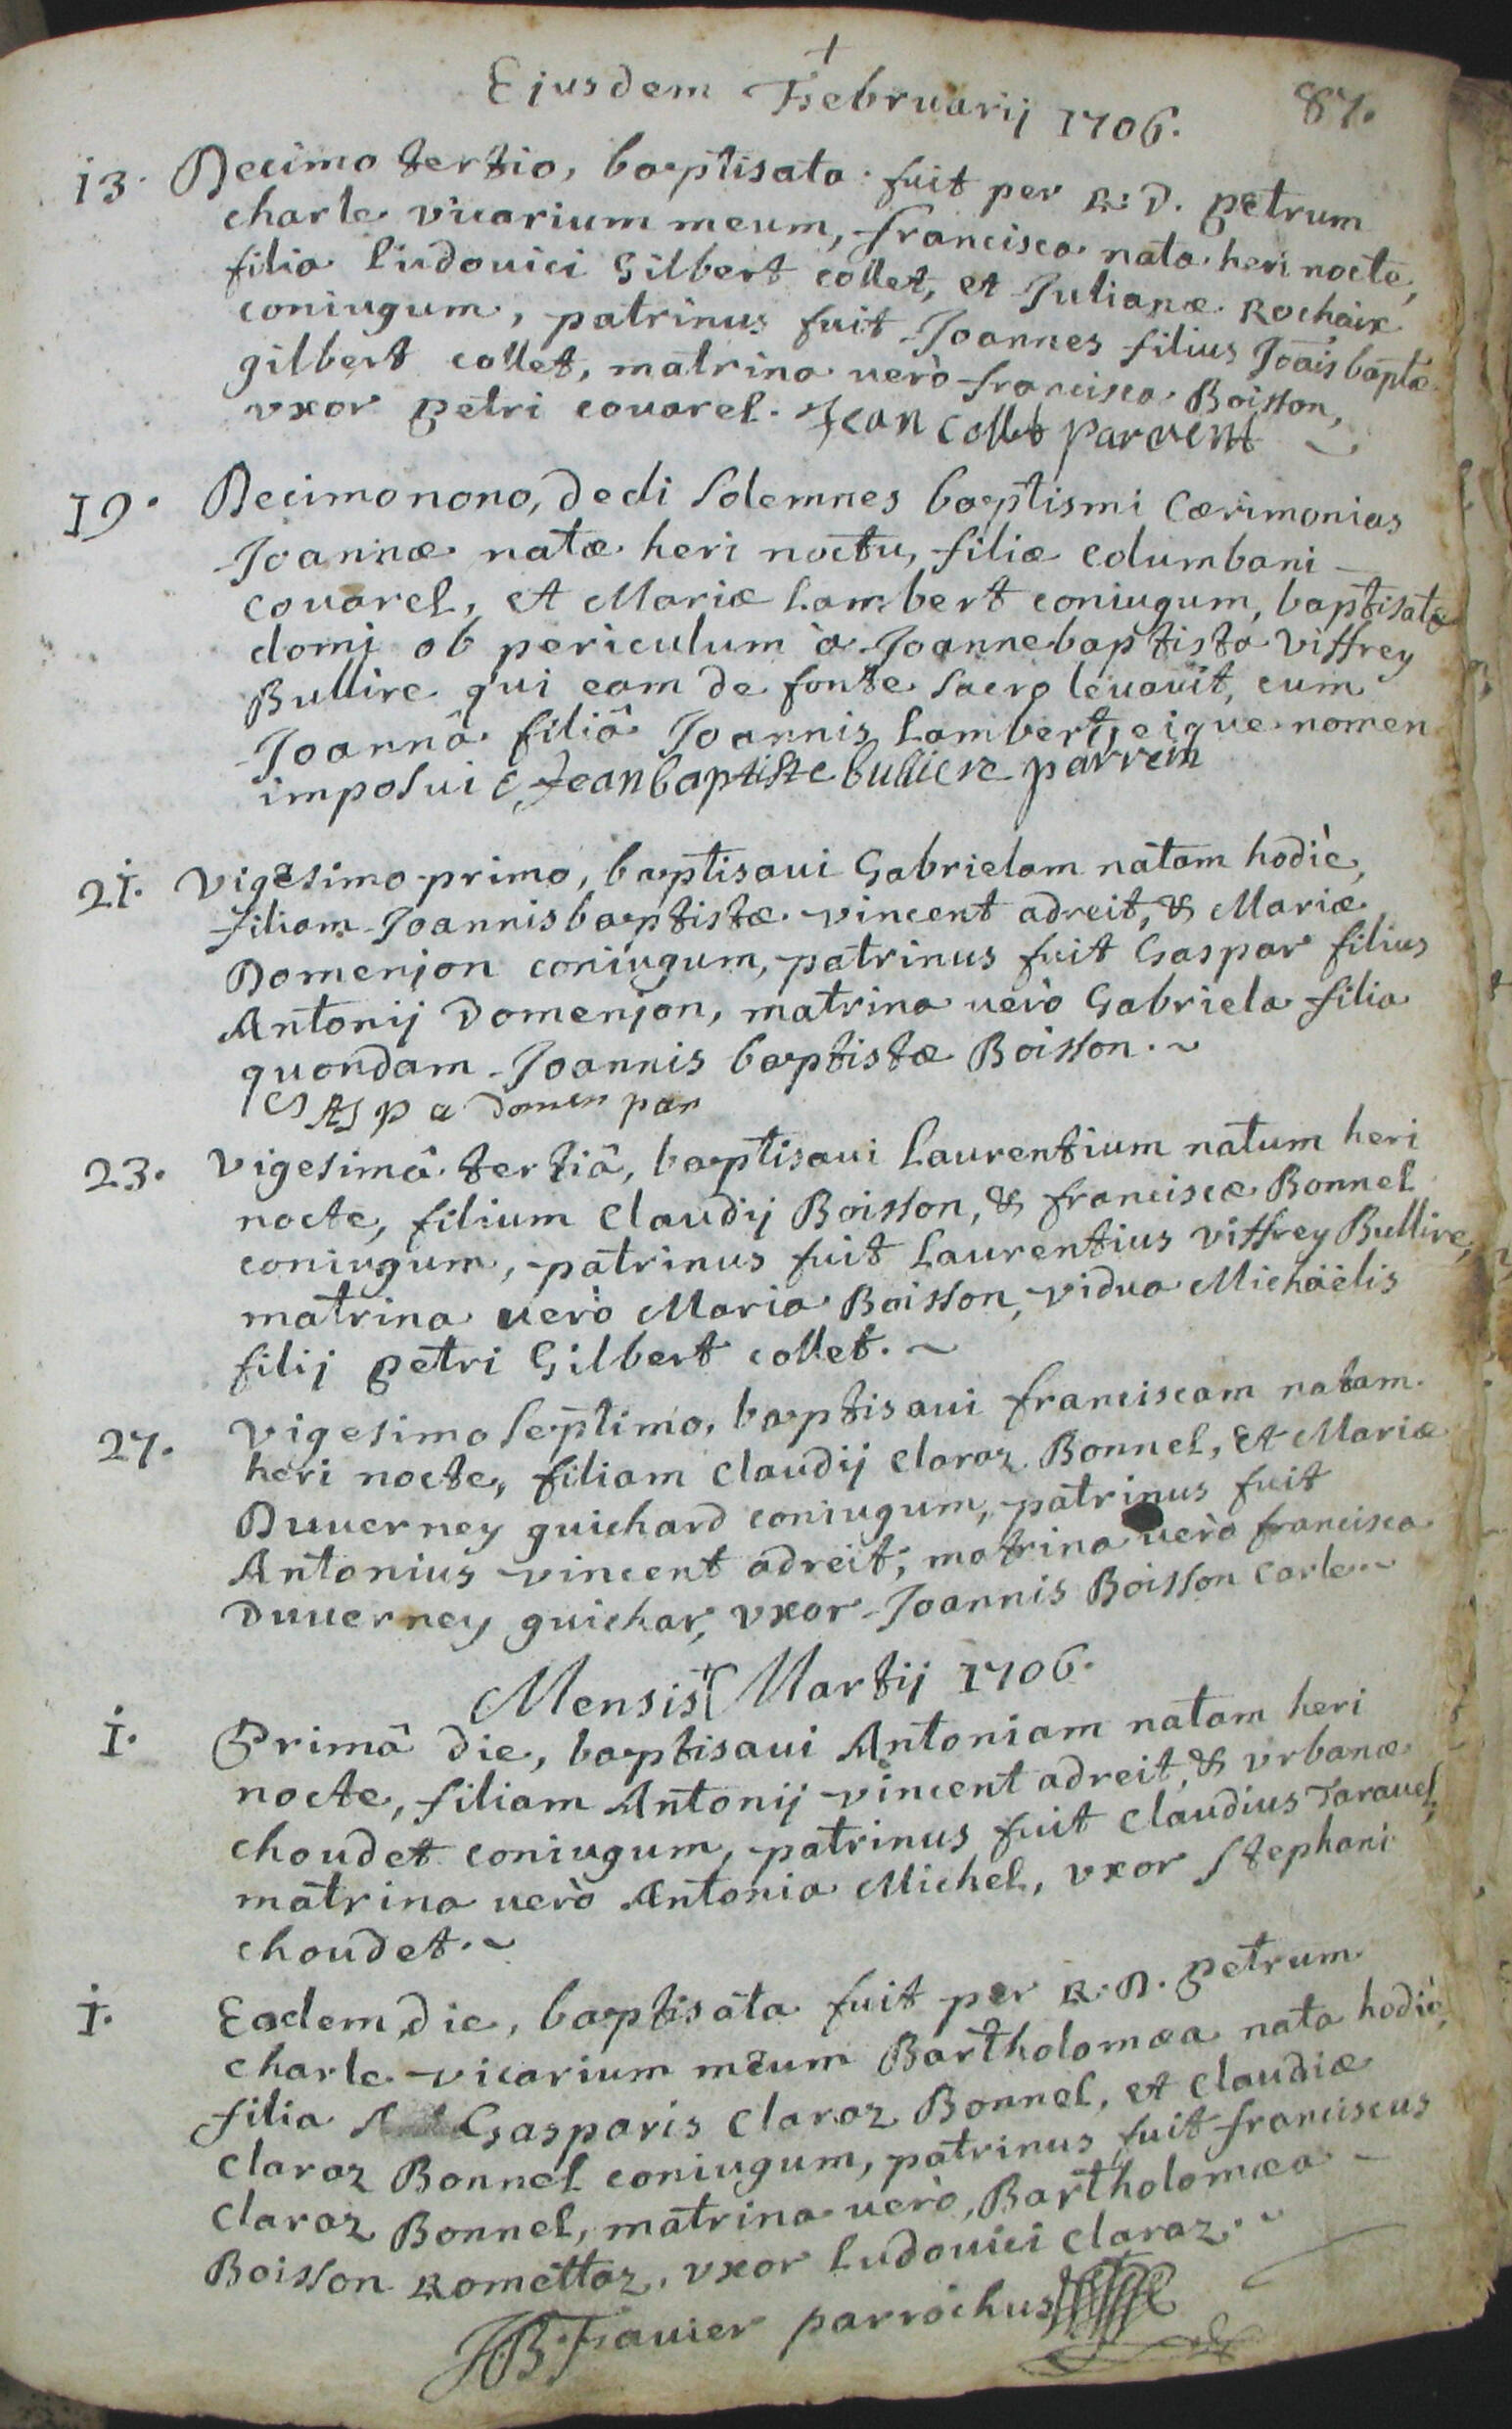 +
Ejusdem Februarij 1706. 87.
13. Decimo tertio, baptisata fuit per R. D. petrum
charle vicarium meum, francisca nata heri nocte,
filia Ludouici Gilbert collet, et Julianæ Rochaix
coniugum, patrinus fuit Joannes filius Joãis baptæ
gilbert collet, matrina uerò francisca Boisson,
vxor petri couarel. Jean Collet parvent
19. Decimo nono, dedi solemnes baptismi cærimonias
Joannæ natæ heri noctu, filiæ columbani
couarel, et Mariæ Lambert coniugum, baptisatæ
domi ob periculum à Joannebaptista Viffrey
Bullire qui eam de fonte sacro leuauit, cum
Joannâ filiâ Joannis Lambert, eique nomen
imposui Jean baptiste bulliere parrem
21. Vigesimo primo, baptisaui Gabrielam natam hodiè,
filiam Joannisbaptistæ vincent adreit, & Mariæ
Domenjon coniugum, patrinus fuit Gaspar filius
Antonij Domenjon, matrina uerò Gabriela filia
quondam Joannis baptistæ Boisson. ~
GASpa domen par
23. Vigesimâ tertiâ, baptisaui Laurentium natum heri
nocte, filium Claudij Boisson, & franciscæ Bonnel
coniugum, patrinus fuit Laurentius viffrey Bullire,
matrina uerò Maria Boisson, vidua Michäelis
filij petri Gilbert collet. ~
27. Vigesimo septimo, baptisaui franciscam natam
heri nocte, filiam Claudij claraz Bonnel, et Mariæ
Duuerney guichard coniugum, patrinus fuit
Antonius vincent adreit, matrina uerò francisca
Duuerney guichar, vxor Joannis Boisson carle ~
Mensis Martij 1706.
1. Primâ die, baptisaui Antoniam natam heri
nocte, filiam Antonij vincent adreit, & vrbanæ
choudet coniugum, patrinus fuit claudius Tarauel,
matrina uerò Antonia Michel, vxor stephani
choudet. ~
1. Eadem die, baptisata fuit per R. D. petrum
charle vicarium meum Bartholomæa nata hodiè,
filia Gasparis claraz Bonnel, et claudiæ
Claraz Bonnel coniugum, patrinus fuit franciscus
Claraz Bonnel, matrina uerò, Bartholomæa
Boisson Romettaz, vxor Ludouici claraz. ~
JB Fauier parrochus